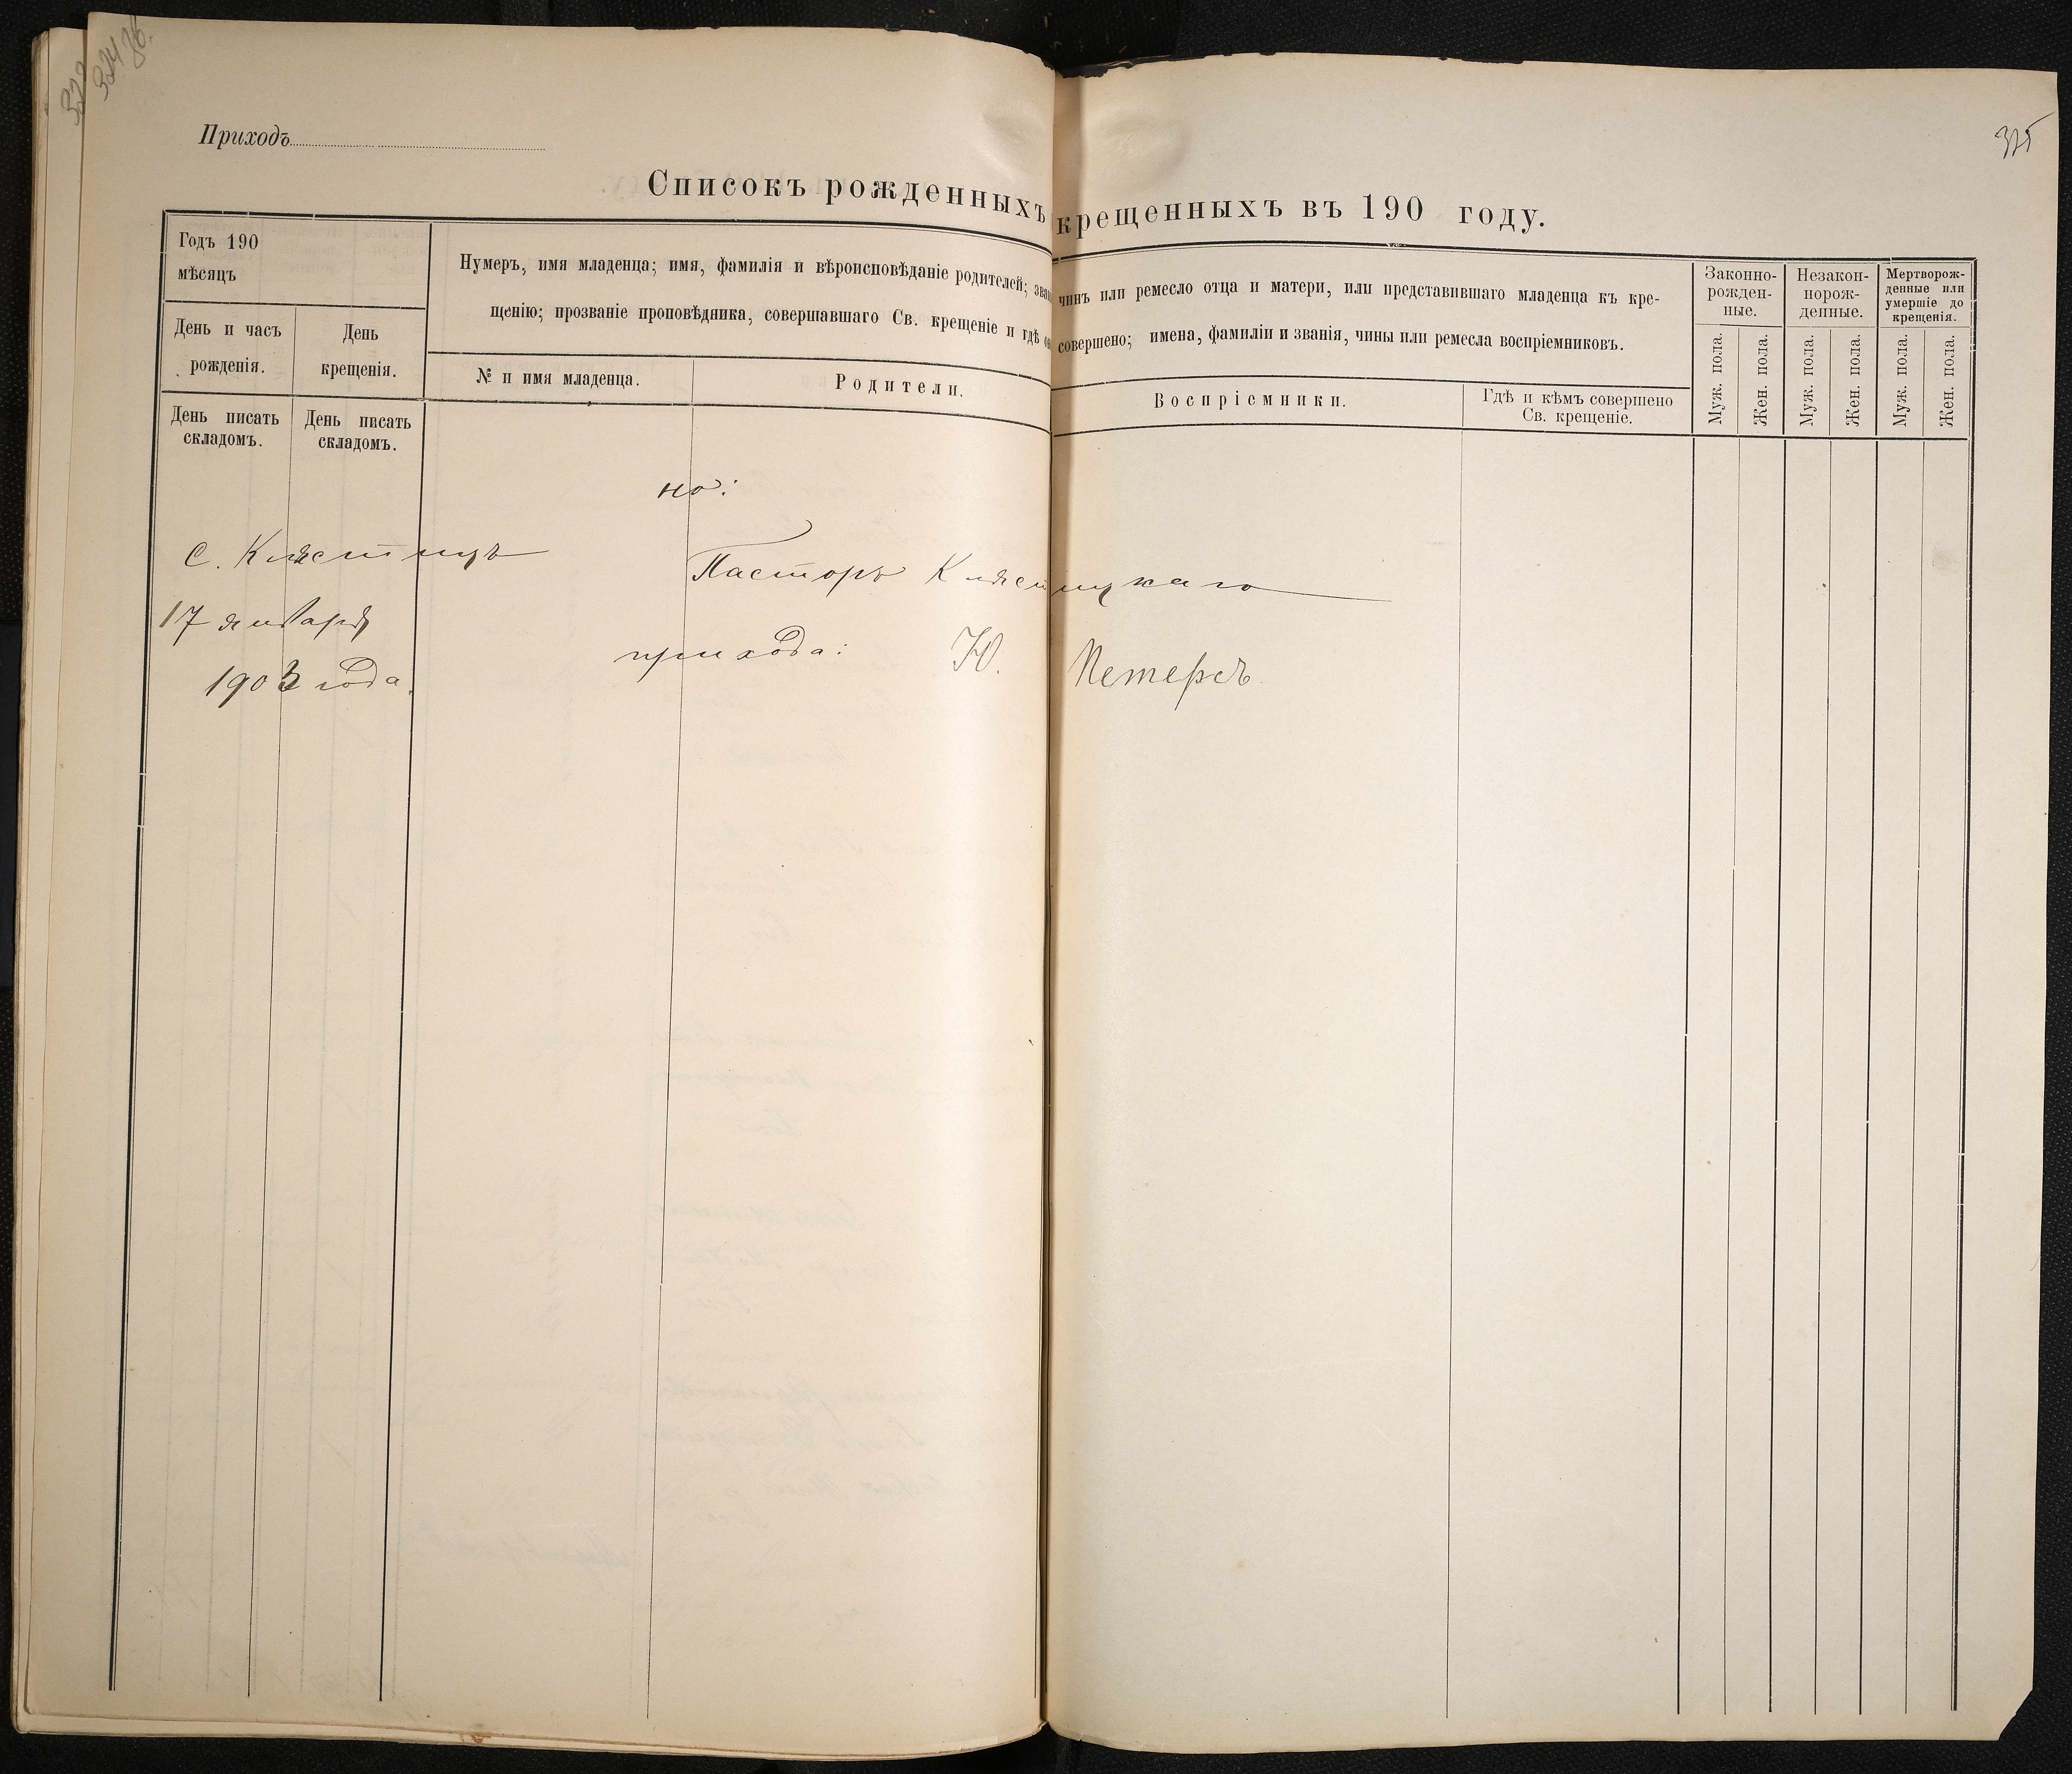 324 об.
322
325
Приходъ
Списокъ рожденныхъ крещенныхъ въ 190 году.
Годъ 190
мѣсяцъ
День и часъ
рожденія.
День
крещенія.
Нумеръ, имя младенца; имя, фамилія и вѣроисповѣданіе родителей; зва чинъ или ремесло отца и матери, или представившаго младенца къ кре-
щенію; прозваніе проповѣдника, совершавшаго Св. крещеніе и гдѣ совершено; имена, фамиліи и званія, чины или ремесла воспріемниковъ.
№ и имя младенца.
Родители.
Воспріемники.
Гдѣ и кѣмъ совершено
Св. крещеніе.
Законно-
рожден-
ные.
Незакон-
норож-
денные.
Мертворож-
денные или
умершіе до
крещенія.
Муж. пола.
Жен. пола.
Муж. пола.
Жен. пола.
Муж. пола.
Жен. пола.
День писать
складомъ.
День писать
складомъ.
но:
с. Клястицъ
Пасторъ Клястицкаго
17 января
прихода: Ю. Петерсъ.
1903 года.